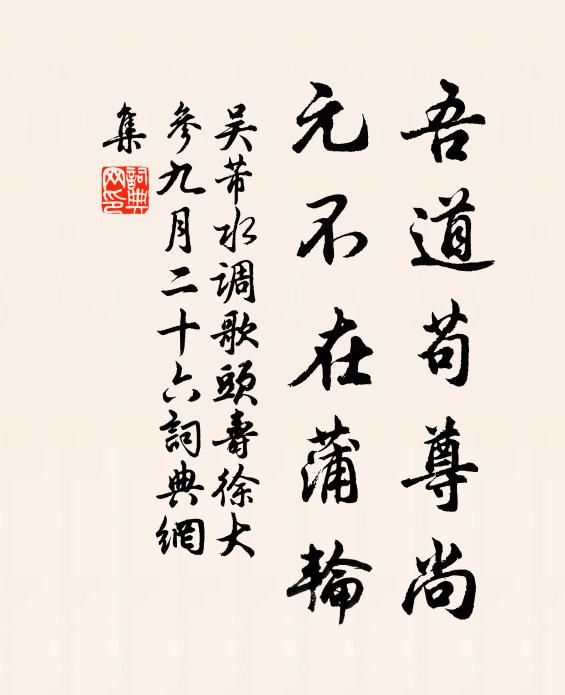 吾道苟尊尚
元不在蒲輪
吴芾水调歌頭壽徐大
參九月二十六詞典網
集
詞典
网印